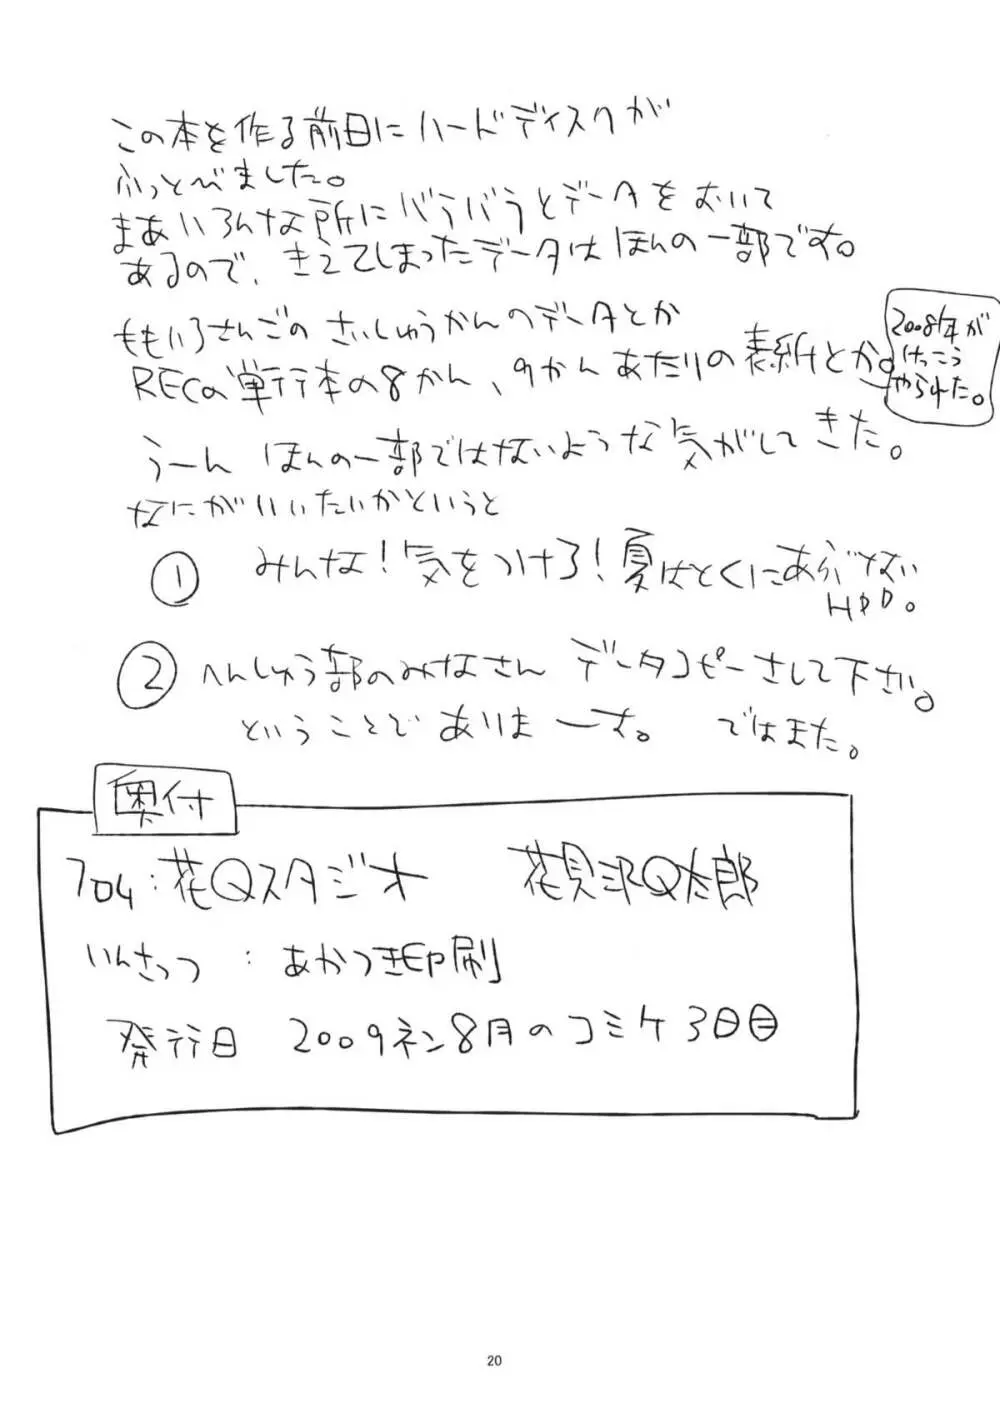 この本を作る前日にハードディスクが
ふっとべました。
まあいろんな所にバラバラとデータをおいて
あるので、きえてしまったデータはほんの一部です。
ももいろさんごのさいしゅうかんのデータとか
RECの単行本の8かん、9かんあたりの表紙とか。
2008年が
けっこう
やられた。
うーん ほんの一部ではないような気がしてきた。
なにがいいたいかというと
① みんな!気をつけろ!夏はとくにあぶない
HDD。
② へんしゅう部のみなさん データコピーさして下さい。
ということでありまーす。 ではまた。
奥付
704:花Qスタジオ 花見沢Q太郎
いんさつ : あかつき印刷
発行日 2009ネン8月のコミケ3日目
20